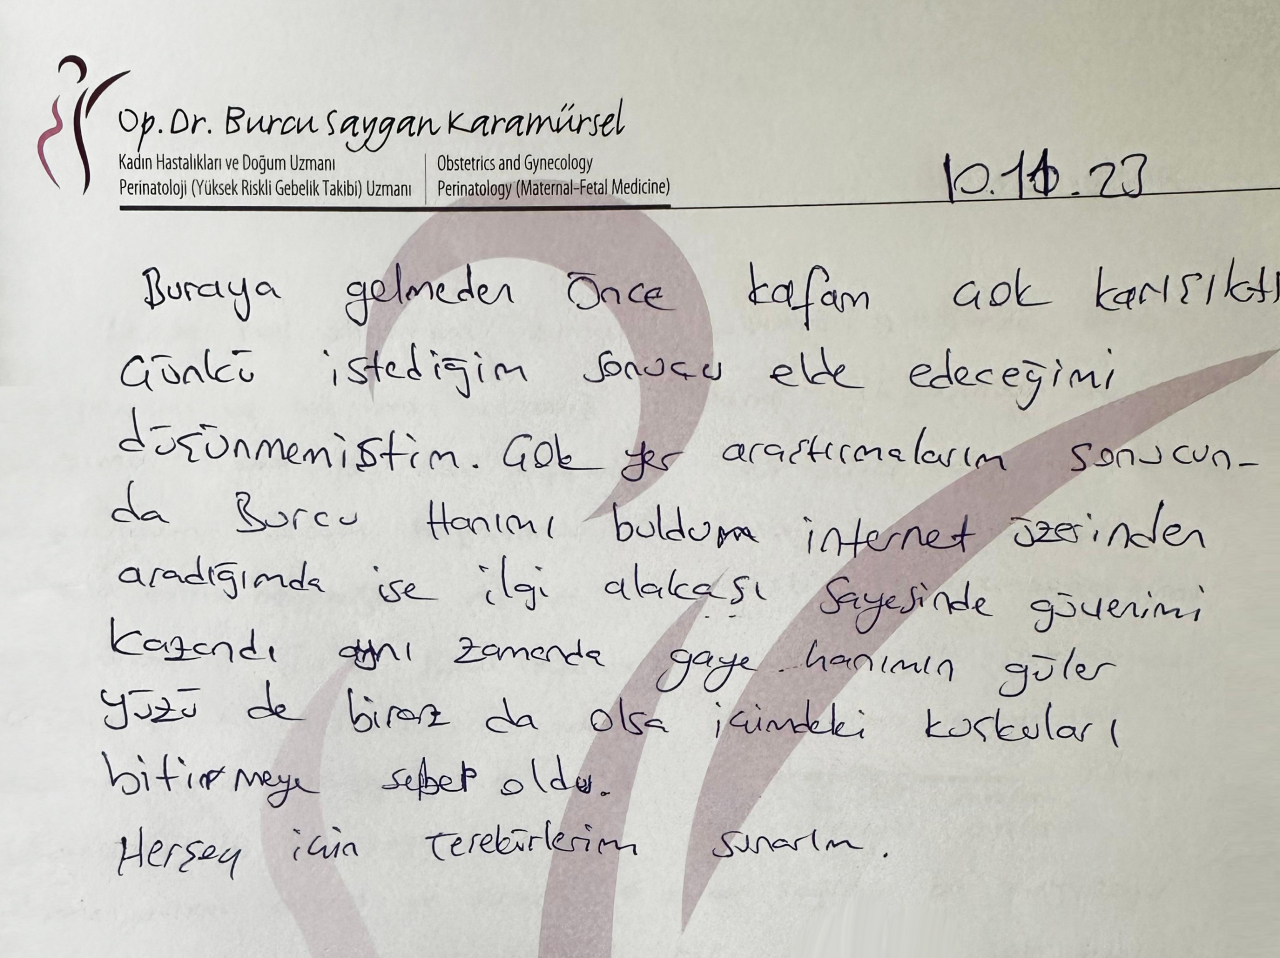 Op. Dr. Burcu Saygan Karamürsel
Kadın Hastalıkları ve Doğum Uzmanı
Perinatoloji (Yüksek Riskli Gebelik Takibi) Uzmanı
Obstetrics and Gynecology
Perinatology (Maternal-Fetal Medicine)
10.11.23
Buraya gelmeden önce kafam çok karışıktı
Çünkü istediğim sonucu elde edeceğimi
düşünmemiştim. Çok yer araştırmalarım sonucun-
da Burcu Hanımı buldum internet üzerinden
aradığımda ise ilgi alakası sayesinde güvenimi
kazandı aynı zamanda gaye hanımın güler
yüzü de biraz da olsa içimdeki kuşkuları
bitirmeye sebep oldu.
Herşey için teşekürlerim sunarım.